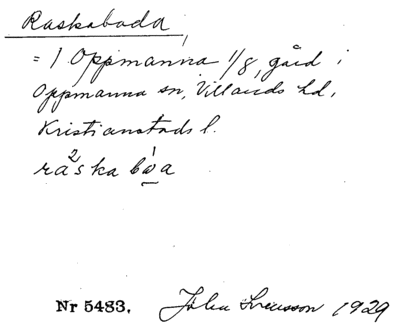 Raskaboda,
= 1 Oppmanna 1/8, gård i
Oppmanna sn, Villands hd,
Kristianstads l.
ra²ska bώ̱a
Nr 5483. John Svensson 1929